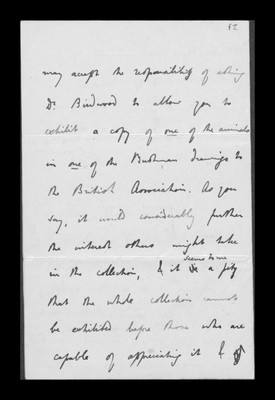 82
may accept the responsibility of asking
Dr. Birdwood to allow you to
exhibit a copy of one of the animals
in one of the Bushman drawings to
the British Association. As you
say, it would considerably further
the interest others might take
seems to me
in the collection, & it a pity
that the whole collection cannot
be exhibited before those who are
capable of appreciating it &